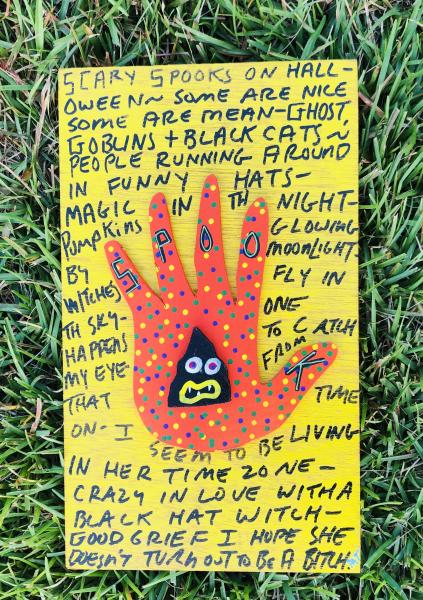 SCARY SPOOKS ON HALL-
OWEEN~ SOME ARE NICE
SOME ARE MEAN-GHOST,
GOBLINS + BLACK CATS~
PEOPLE RUNNING AROUND
IN FUNNY HATS-
MAGIC IN TH NIGHT-
PUMPKINS GLOWING
MOONLIGHT-
SPOOK
BY FLY IN
WITCHES ONE
TH SKY- TO CATCH
HAPPENS FROM
MY EYE-
THAT TIME
ON- I SEEM TO BE LIVING
IN HER TIME ZONE-
CRAZY IN LOVE WITH A
BLACK HAT WITCH-
GOOD GRIEF I HOPE SHE
DOESN'T TURN OUT TO BE A BITCH